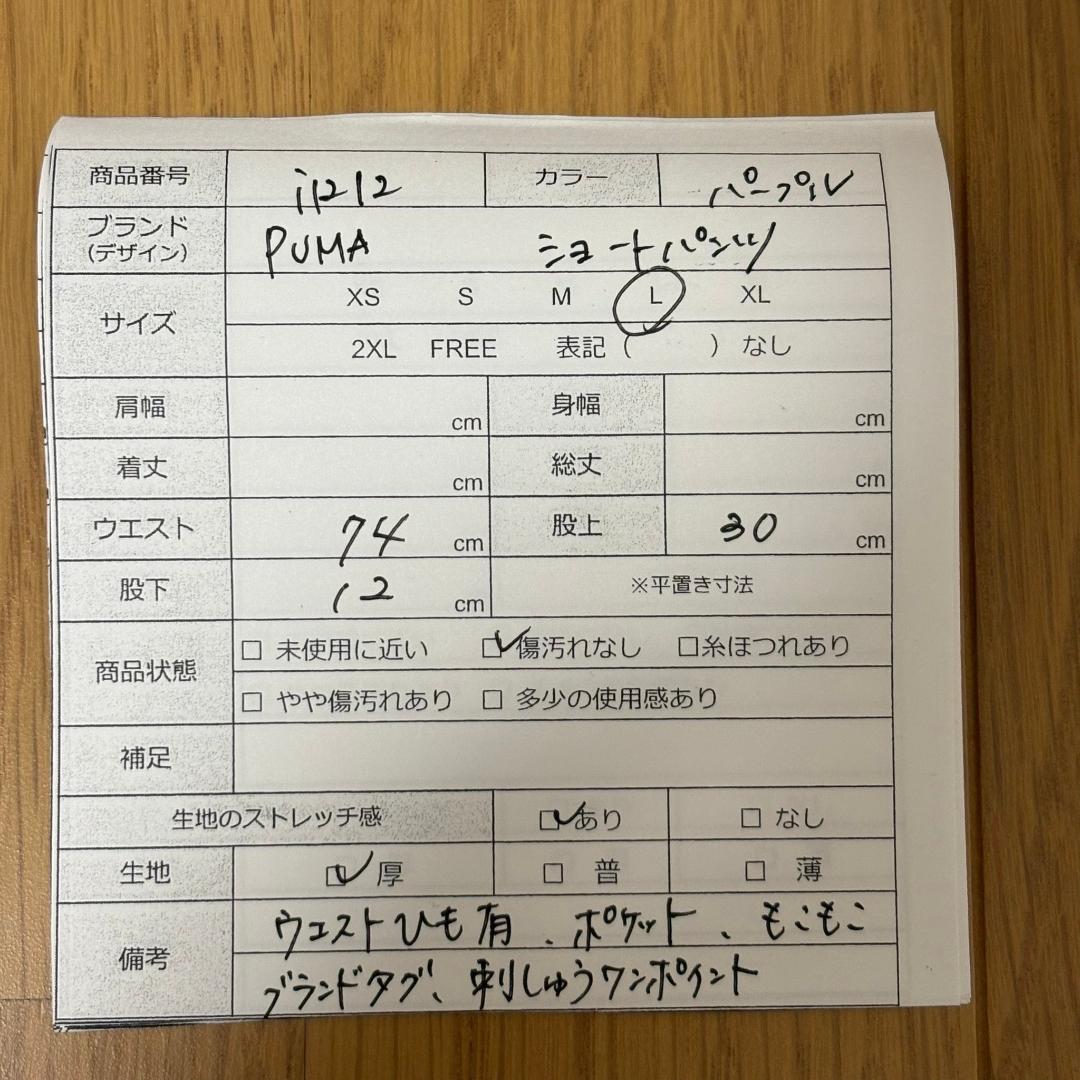 商品番号 i1212 カラー パープル
ブランド PUMA ショートパンツ
(デザイン)
サイズ XS S M L XL
2XL FREE 表記 ( ) なし
肩幅 cm 身幅 cm
着丈 cm 総丈 cm
ウエスト 74 cm 股上 30 cm
股下 12 cm ※平置き寸法
商品状態 □ 未使用に近い ☑ 傷汚れなし □糸ほつれあり
□ やや傷汚れあり □ 多少の使用感あり
補足
生地のストレッチ感 ☑あり □ なし
生地 ☑ 厚 □ 普 □ 薄
備考 ウエストひも有、ポケット、もこもこ
ブランドタグ、刺しゅうワンポイント